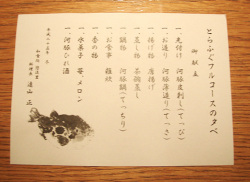 とらふぐフルコースの夕べ
御献立
一先付け 河豚皮刺し(てっぴ)
一お造り 河豚薄造り(てっさ)
一揚げ物 唐揚げ
一蒸し物 茶碗蒸し
一鍋物 河豚鍋(てっちり)
一お食事 雑炊
一香の物
一水菓子 苺、メロン
一河豚ひれ酒